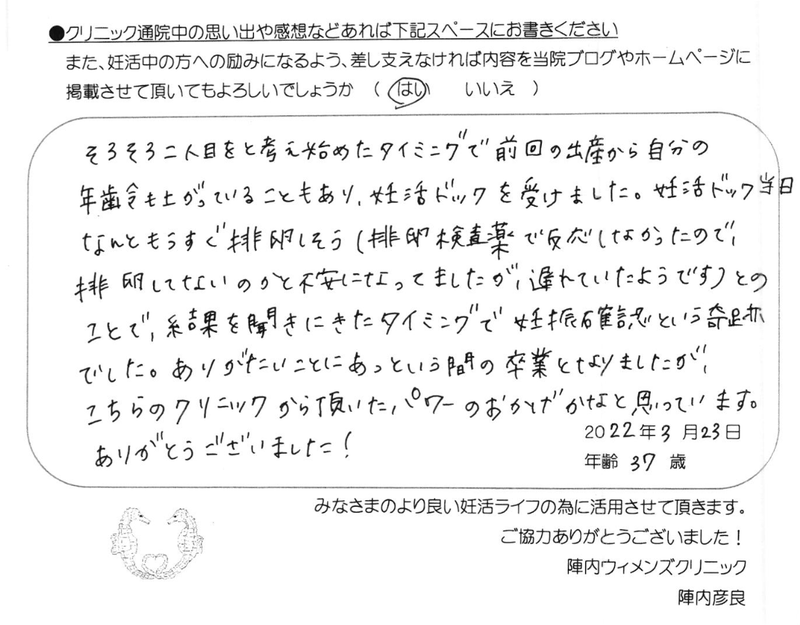 ●クリニック通院中の思い出や感想などあれば下記スペースにお書きください
また、妊活中の方への励みになるよう、差し支えなければ内容を当院ブログやホームページに
掲載させて頂いてもよろしいでしょうか （ はい いいえ ）
そろそろ二人目をと考え始めたタイミングで前回の出産から自分の
年齢も上がっていることもあり、妊活ドックを受けました。妊活ドック当日
なんともうすぐ排卵しそう(排卵検査薬で反応しなかったので、
排卵してないのかと不安になってましたが、遅れていたようです)との
ことで、結果を聞きにきたタイミングで妊娠確認という奇跡
でした。ありがたいことにあっという間の卒業となりましたが、
こちらのクリニックから頂いたパワーのおかげかなと思っています。
ありがとうございました！
2022年3月23日
年齢 37 歳
みなさまのより良い妊活ライフの為に活用させて頂きます。
ご協力ありがとうございました！
陣内ウィメンズクリニック
陣内彦良